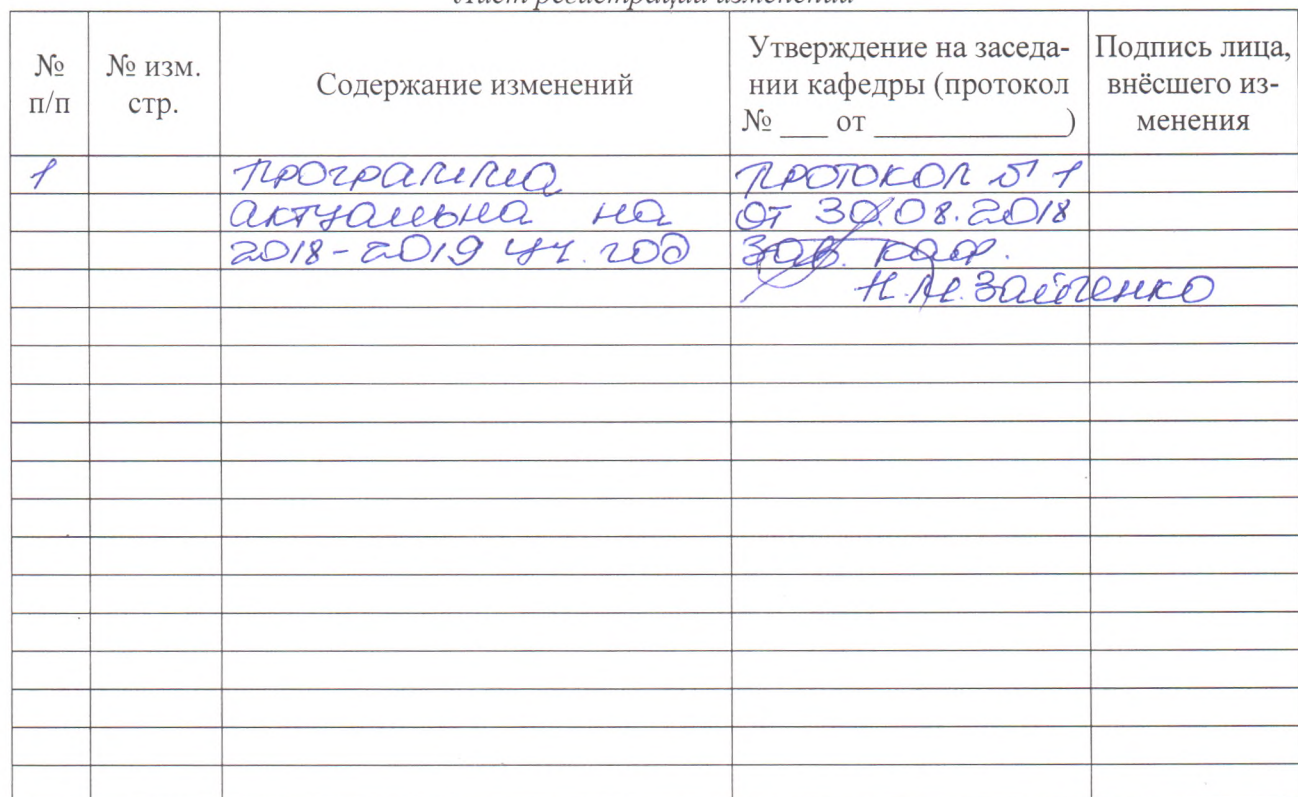 Лист регистрации изменений
№ п/п
№ изм. стр.
Содержание изменений
Утверждение на заседа-
нии кафедры (протокол
№ ___ от ____________)
Подпись лица,
внёсшего из-
менения
1
программа
актуальна на
2018-2019 уч. год
протокол № 1
от 30.08.2018
Зав. каф.
Н.М. Зайченко